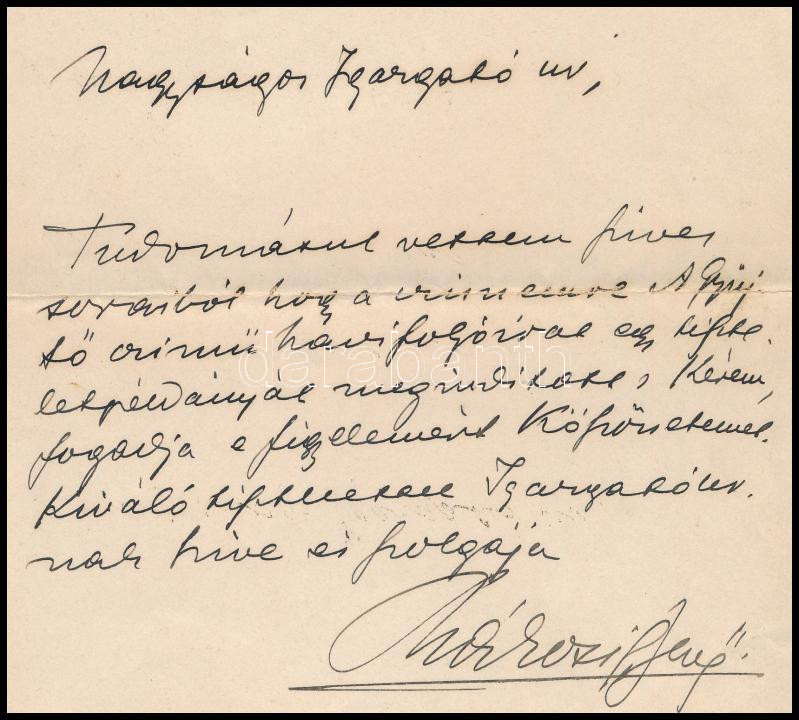 Nagyságos Igazgató úr,
Tudomásul vettem szíves
soraiból hogy a címemre A Gyűj
tő című havi folyóirat egy tiszte
letpéldányát megindította. Kérem,
fogadja e figyelemért köszönetemet.
Kiváló tisztelettel Igazgató úr.
nak híve és szolgája
Rákosi Jenő.
darabanth